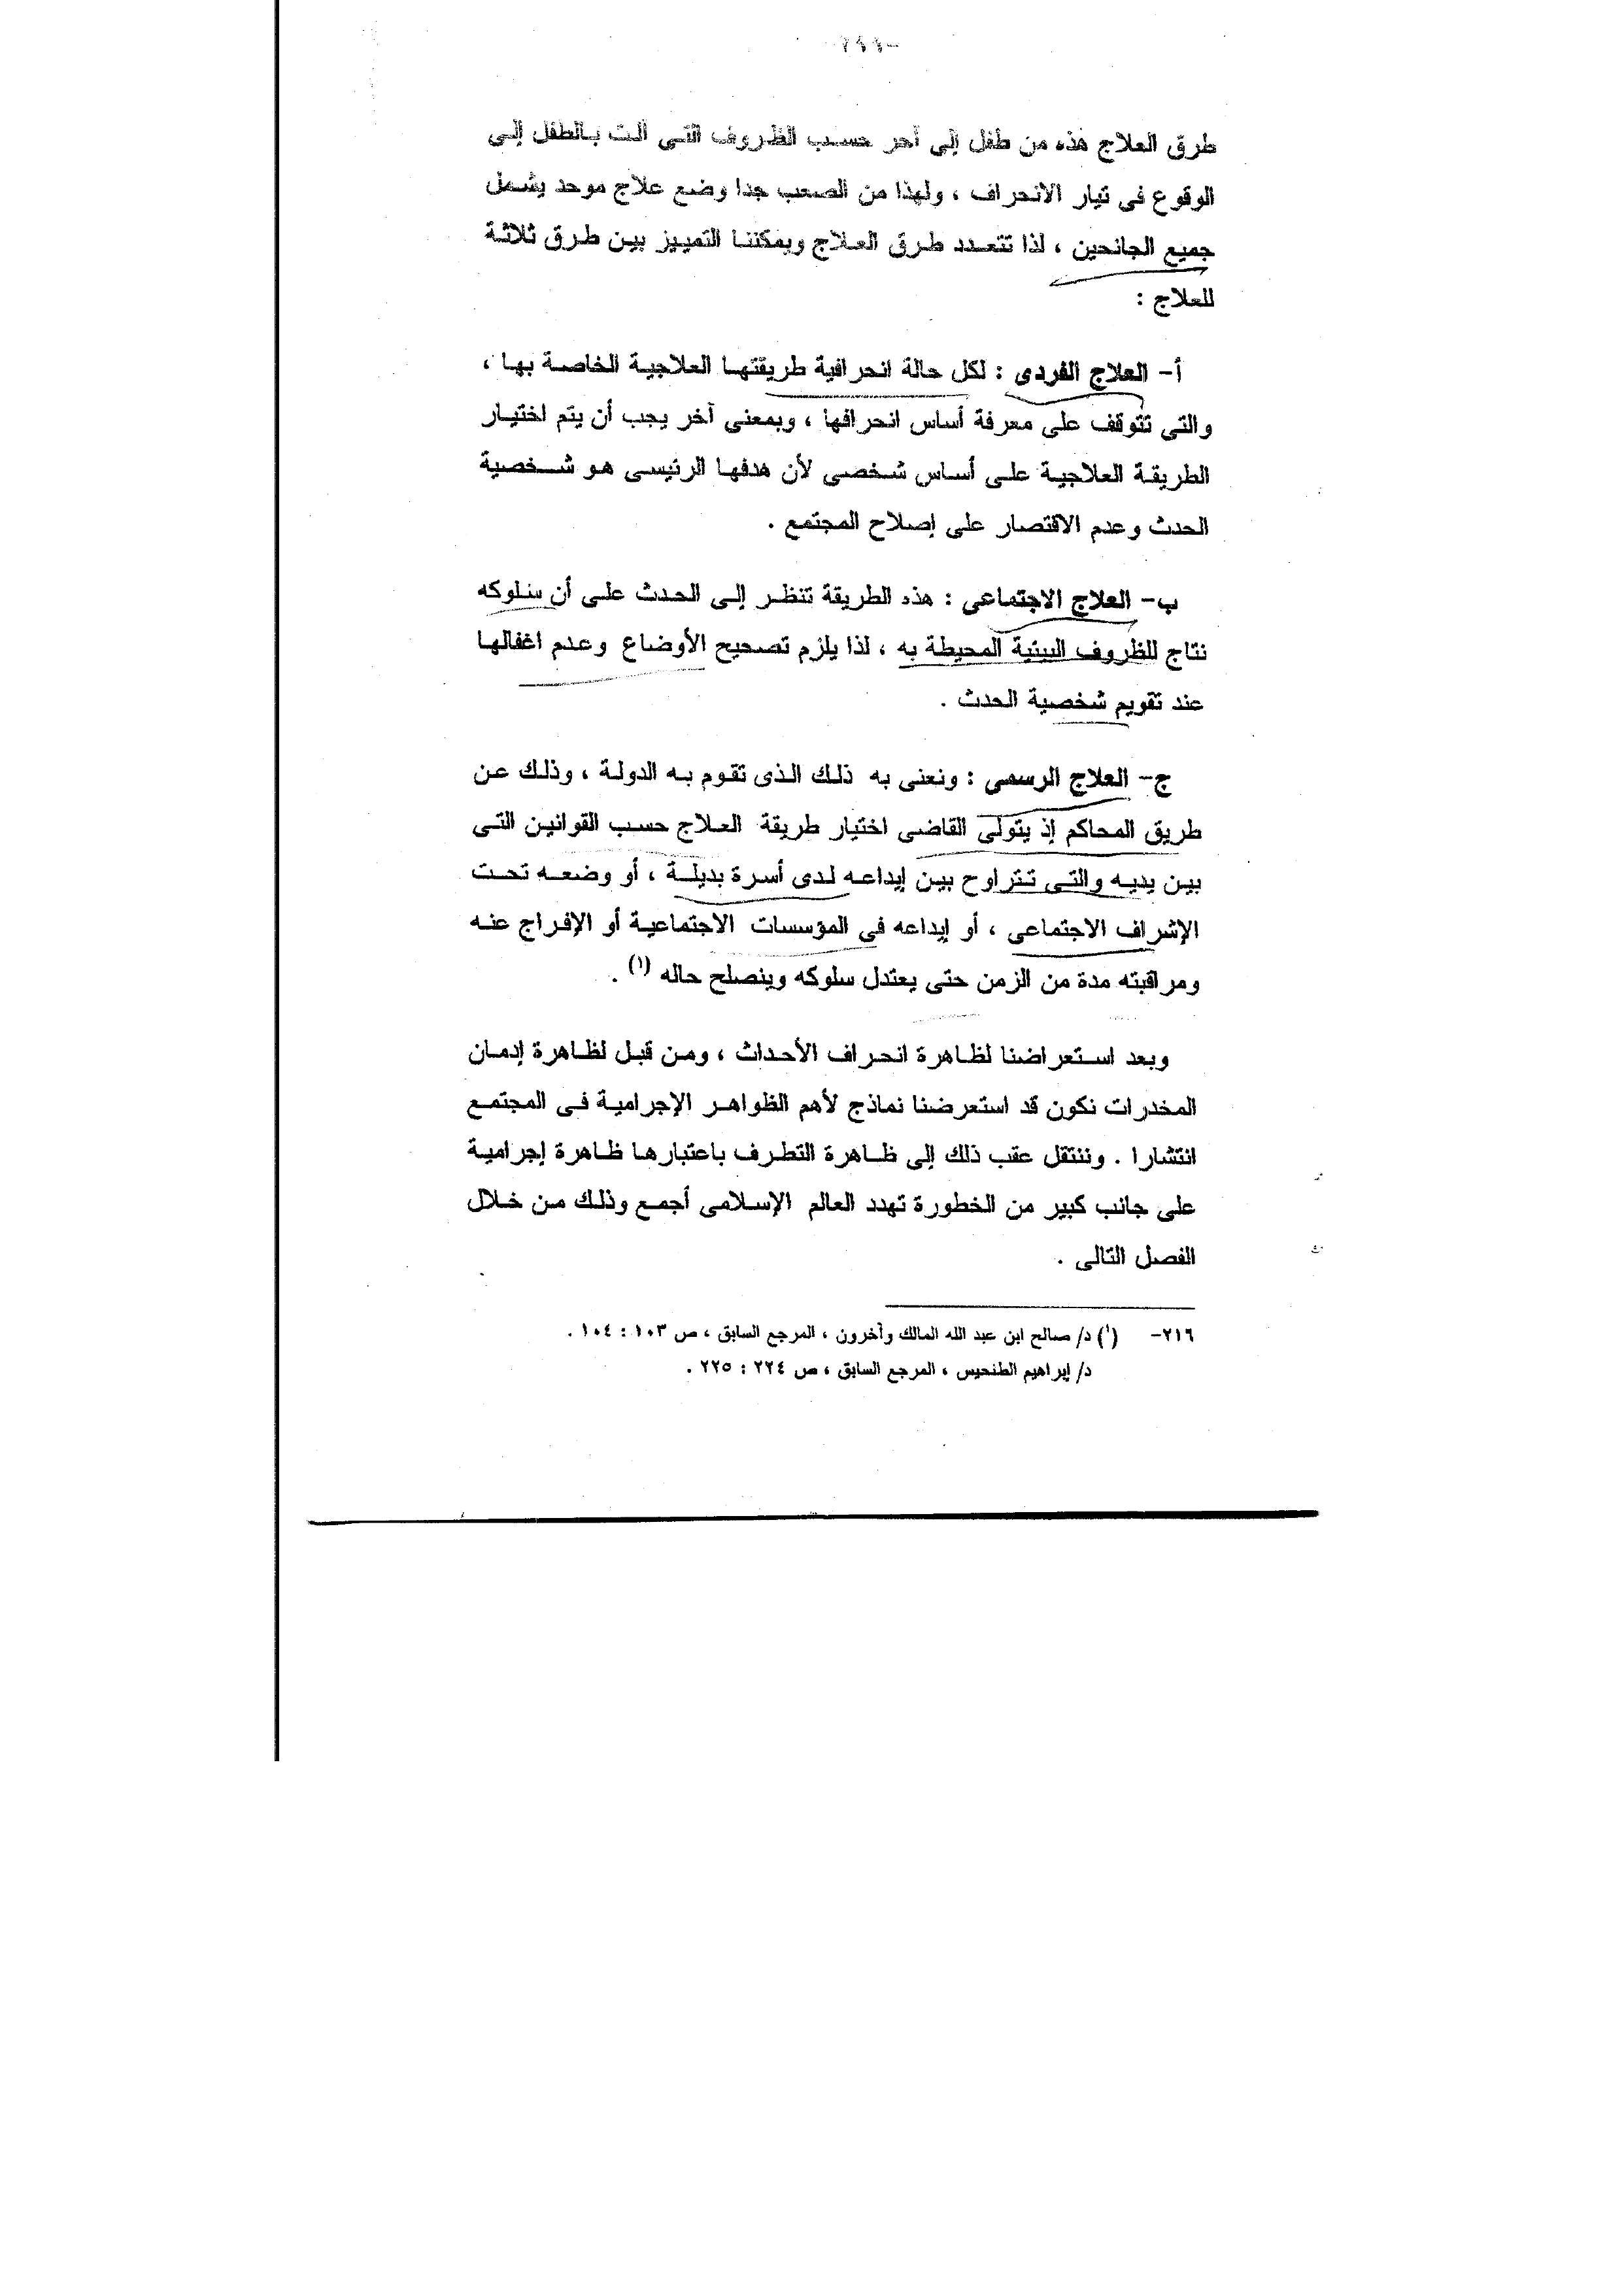 طرق العلاج هذه من طفل إلى آخر حسب الظروف التى ألت بالطفل إلى
الوقوع فى تيار الانحراف ، ولهذا من الصعب جدا وضع علاج موحد يشمل
جميع الجانحين ، لذا تتعدد طرق العلاج ويمكننا التمييز بين طرق ثلاثة
للعلاج :
أ- العلاج الفردى : لكل حالة انحرافية طريقتها العلاجية الخاصة بها ،
والتى تتوقف على معرفة أساس انحرافها ، وبمعنى آخر يجب أن يتم اختيار
الطريقة العلاجية على أساس شخصى لأن هدفها الرئيسى هو شخصية
الحدث وعدم الاقتصار على إصلاح المجتمع .
ب- العلاج الاجتماعى : هذه الطريقة تنظر إلى الحدث على أن سلوكه
نتاج للظروف البيئية المحيطة به ، لذا يلزم تصحيح الأوضاع وعدم اغفالها
عند تقويم شخصية الحدث .
ج- العلاج الرسمى : ونعنى به ذلك الذى تقوم به الدولة ، وذلك عن
طريق المحاكم إذ يتولى القاضى اختيار طريقة العلاج حسب القوانين التى
بين يديه والتى تتراوح بين إيداعه لدى أسرة بديلة ، أو وضعه تحت
الإشراف الاجتماعى ، أو إيداعه فى المؤسسات الاجتماعية أو الإفراج عنه
ومراقبته مدة من الزمن حتى يعتدل سلوكه وينصلح حاله (١) .
وبعد استعراضنا لظاهرة انحراف الأحداث ، ومن قبل لظاهرة إدمان
المخدرات نكون قد استعرضنا نماذج لأهم الظواهر الإجرامية فى المجتمع
انتشارا . وننتقل عقب ذلك إلى ظاهرة التطرف باعتبارها ظاهرة إجرامية
على جانب كبير من الخطورة تهدد العالم الإسلامى أجمع وذلك من خلال
الفصل التالى .
٢١٦- (١) د/ صالح ابن عبد الله المالك وآخرون ، المرجع السابق ، ص ١٠٣ : ١٠٤ .
د/ إبراهيم الطخيس ، المرجع السابق ، ص ٢٢٤ : ٢٢٥ .